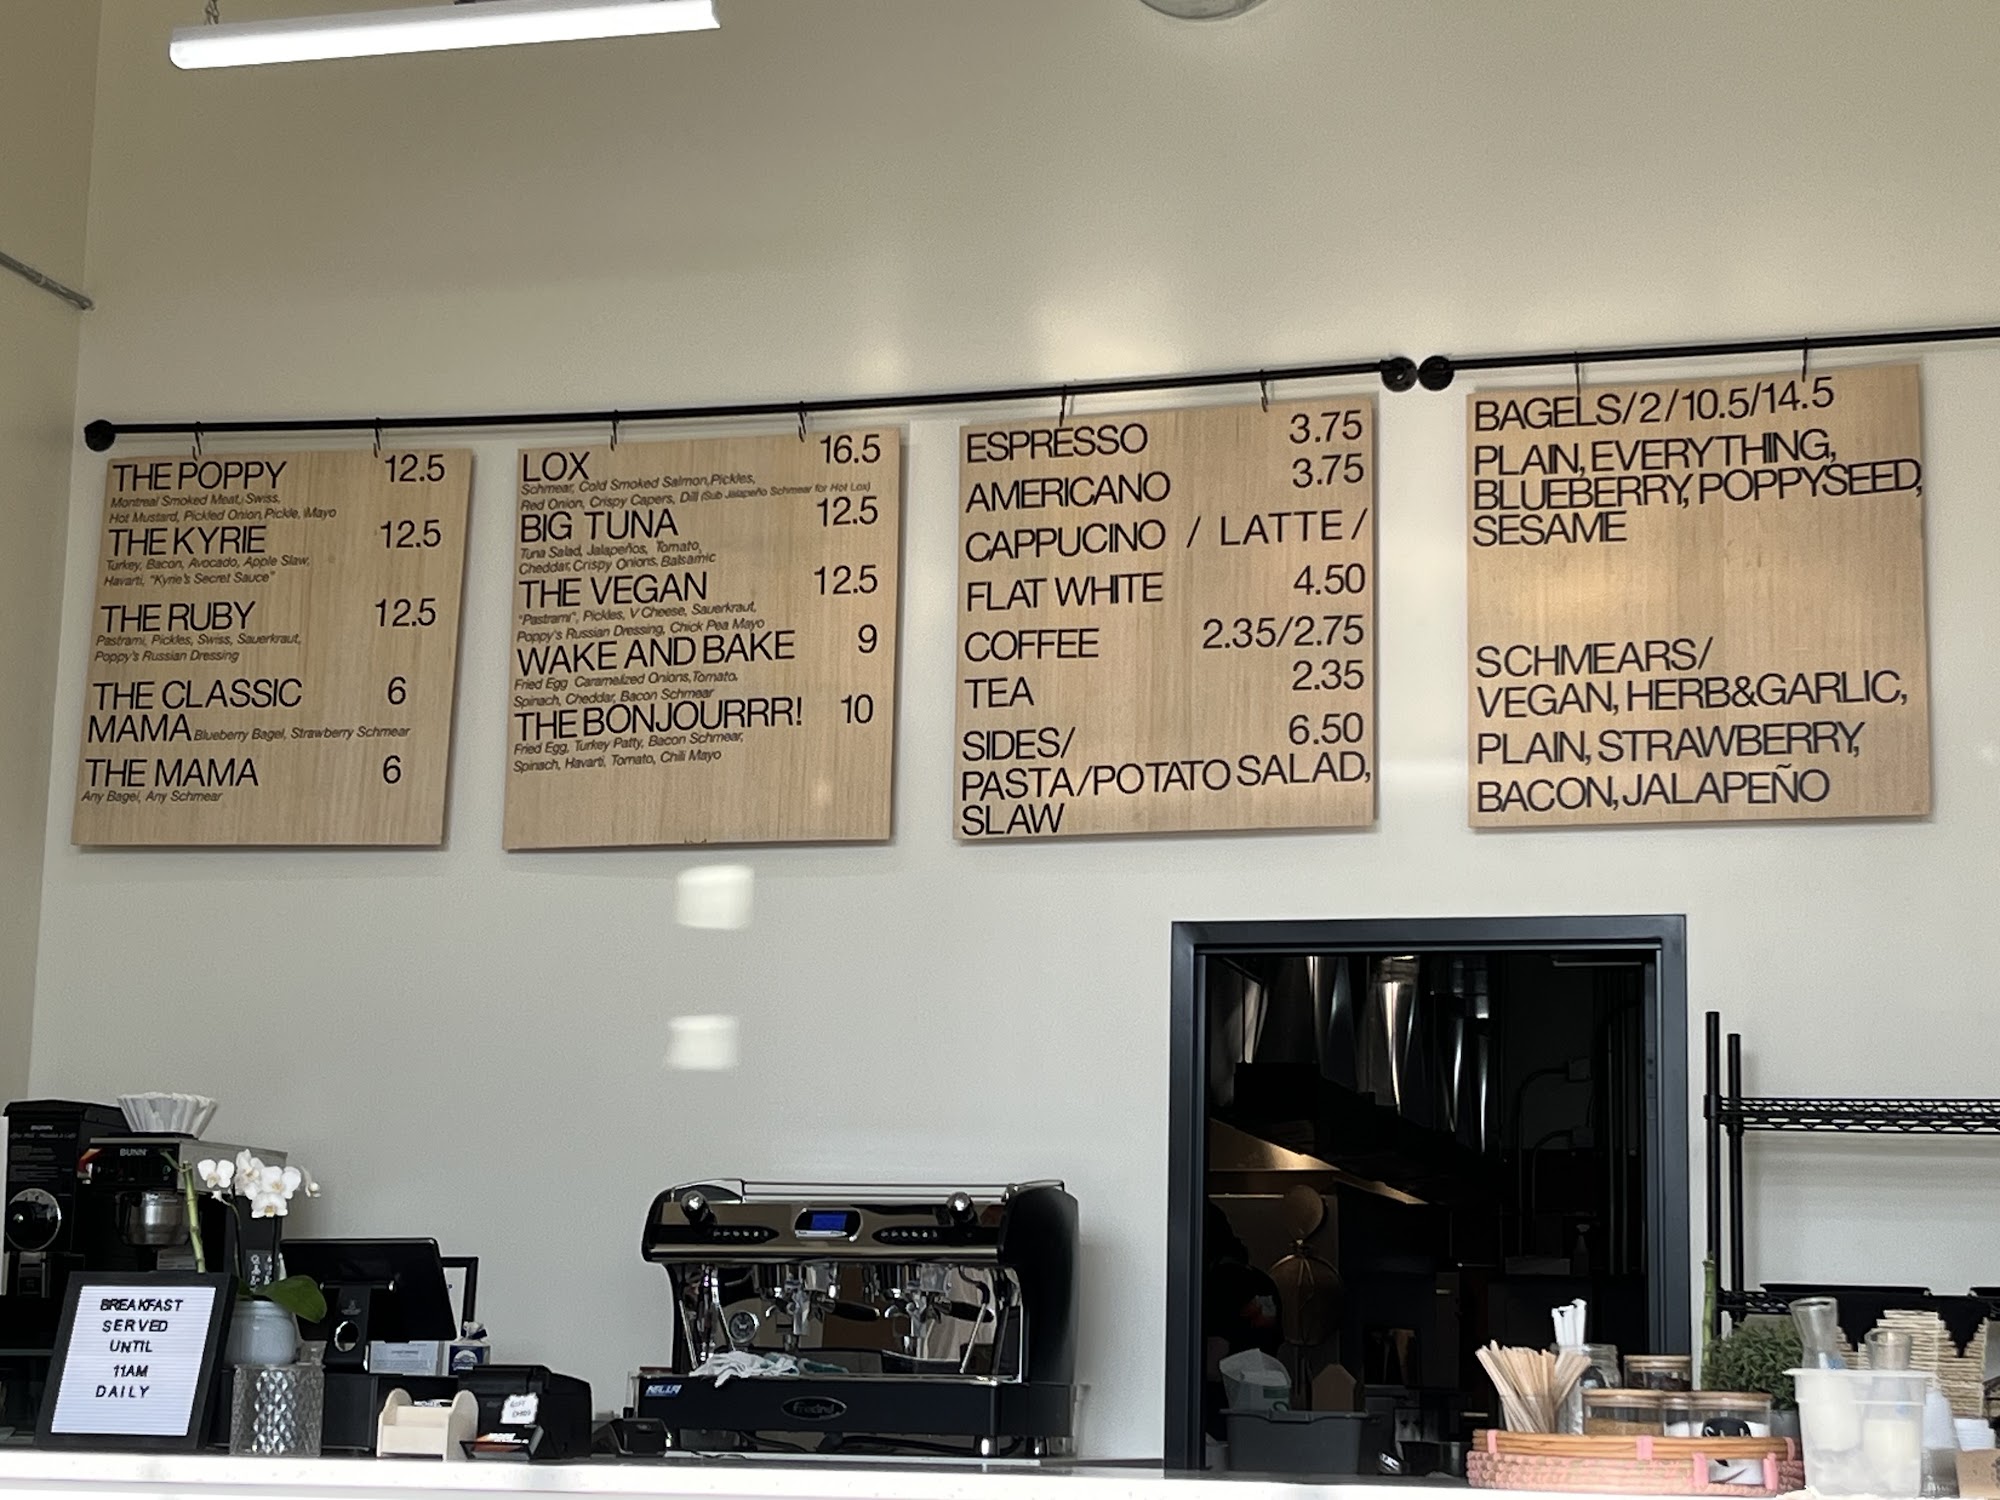 THE POPPY 12.5
Montreal Smoked Meat, Swiss,
Hot Mustard, Pickled Onion, Pickle, Mayo
THE KYRIE 12.5
Turkey, Bacon, Avocado, Apple Slaw,
Havarti, "Kyrie's Secret Sauce"
THE RUBY 12.5
Pastrami, Pickles, Swiss, Sauerkraut,
Poppy's Russian Dressing
THE CLASSIC 6
MAMA Blueberry Bagel, Strawberry Schmear
THE MAMA 6
Any Bagel, Any Schmear
LOX 16.5
Schmear, Cold Smoked Salmon, Pickles,
Red Onion, Crispy Capers, Dill (Sub Jalapeño Schmear for Hot Lox)
BIG TUNA 12.5
Tuna Salad, Jalapeños, Tomato,
Cheddar, Crispy Onions, Balsamic
THE VEGAN 12.5
"Pastrami", Pickles, V Cheese, Sauerkraut,
Poppy's Russian Dressing, Chick Pea Mayo
WAKE AND BAKE 9
Fried Egg Caramelized Onions, Tomato,
Spinach, Cheddar, Bacon Schmear
THE BONJOURRR! 10
Fried Egg, Turkey Patty, Bacon Schmear,
Spinach, Havarti, Tomato, Chili Mayo
ESPRESSO 3.75
AMERICANO 3.75
CAPPUCINO / LATTE /
FLAT WHITE 4.50
COFFEE 2.35/2.75
TEA 2.35
SIDES/ 6.50
PASTA/POTATO SALAD,
SLAW
BAGELS/2/10.5/14.5
PLAIN, EVERYTHING,
BLUEBERRY, POPPYSEED,
SESAME
SCHMEARS/
VEGAN, HERB&GARLIC,
PLAIN, STRAWBERRY,
BACON, JALAPEÑO
BUNN
BUNN
BREAKFAST
SERVED
UNTIL
11AM
DAILY
NELLA